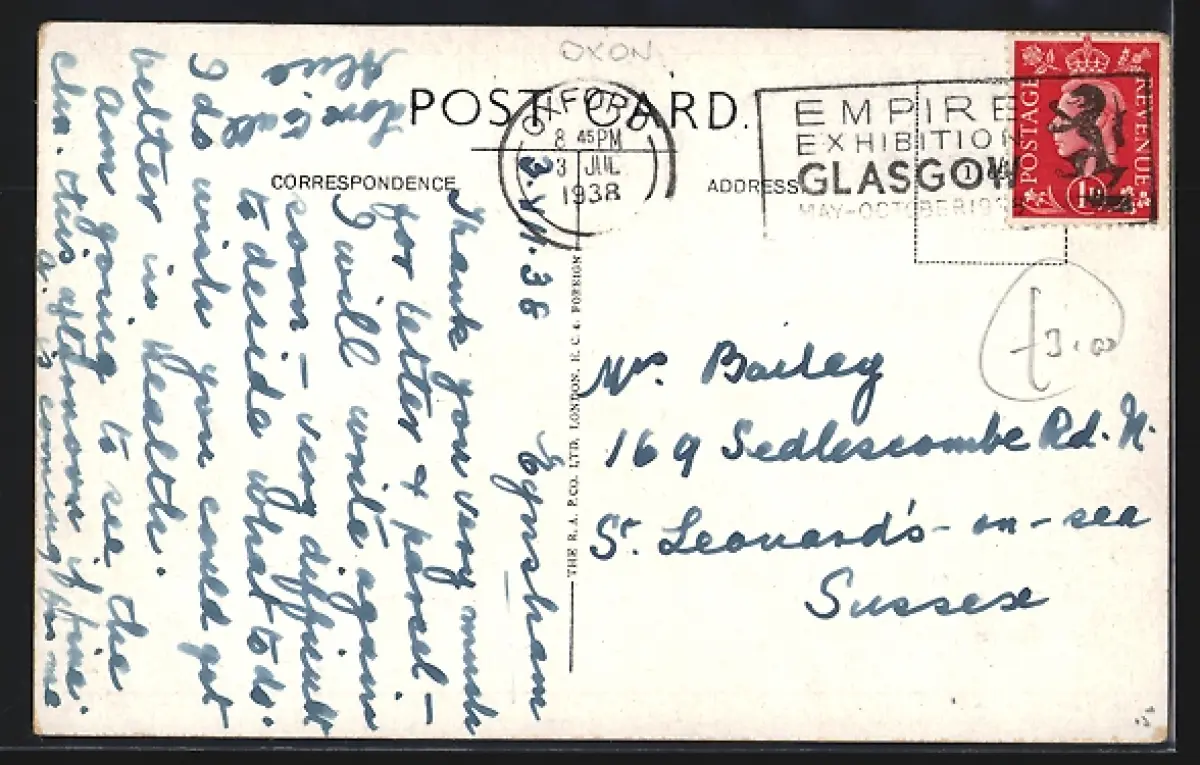 OXON
POST CARD.
OXFORD
8 45 PM
3 JUL
1938
EMPIRE
EXHIBITION
GLASGOW
MAY-OCTOBER 1938
POSTAGE
REVENUE
1D
CORRESPONDENCE
ADDRESS
THE R.A. P.CO. LTD. LONDON. E.C.4. FOREIGN
£3.00
Mrs. Bailey
169 Sedlescombe Rd. N.
St. Leonard's-on-sea
Sussex
Eynsham
3.VII.38
Thank you very much
for letter & parcel –
I will write again
soon – very difficult
to deside what to do.
I do wish you could get
better in health.
Am going to see the
this afternoon if fine.
is coming for me
love to all